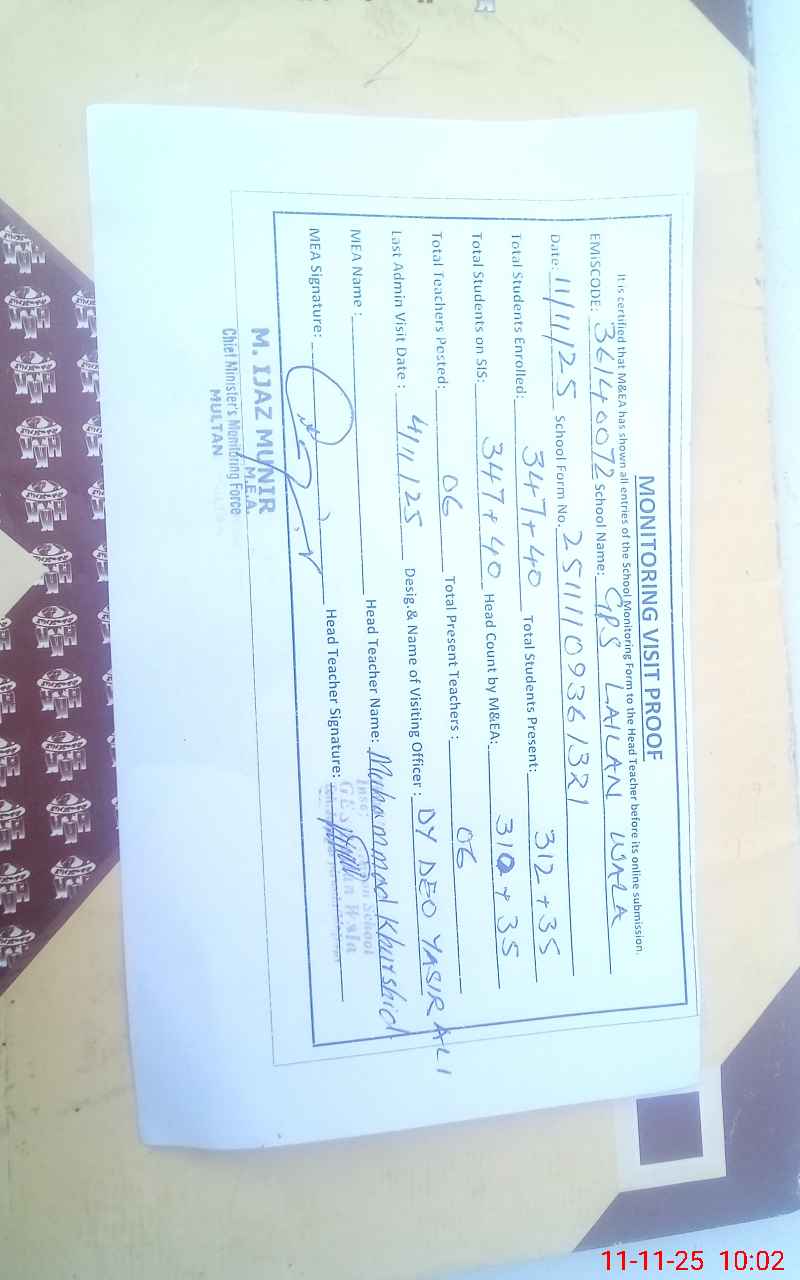 MONITORING VISIT PROOF
It is certified that M&EA has shown all entries of the School Monitoring Form to the Head Teacher before its online submission.
EMISCODE: 36140072 School Name: GPS LAILAN WALA
Date: 11/11/25 School Form No. 25111109361321
Total Students Enrolled: 347+40 Total Students Present: 312+35
Total Students on SIS: 347+40 Head Count by M&EA: 310+35
Total Teachers Posted: 06 Total Present Teachers : 06
Last Admin Visit Date : 4/11/25 Desig.& Name of Visiting Officer : DY DEO YASIR ALI
MEA Name : Head Teacher Name: Muhammad Khurshid
MEA Signature: Head Teacher Signature:
School
Wala
M. IJAZ MUNIR
M.E.A.
Chief Minister's Monitoring Force
MULTAN
11-11-25 10:02